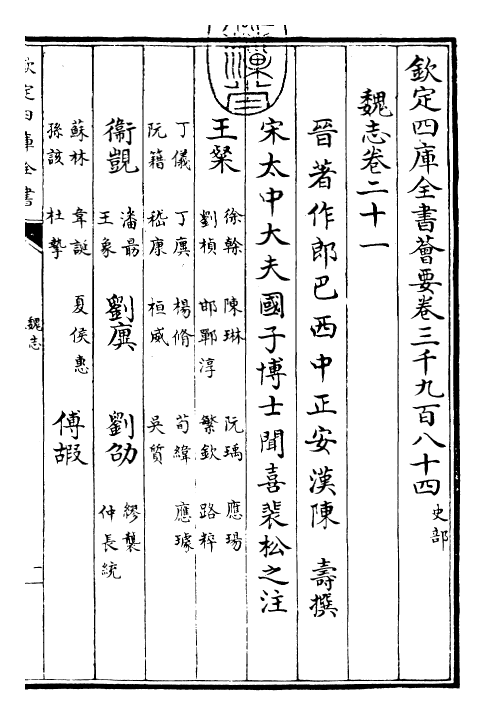 欽定四庫全書薈要卷三千九百八十四 史部
魏志卷二十一
晉著作郎巴西中正安漢陳 壽撰
宋太中大夫國子博士聞喜裴松之注
王粲 徐幹 陳琳 阮瑀 應瑒
劉楨 邯鄲淳 繁欽 路粹
丁儀 丁廙 楊脩 荀緯 應璩
阮籍 嵇康 桓威 吳質
衞覬 潘勗 劉廙 劉劭 繆襲
王象 仲長統
蘇林 韋誕 夏侯惠 傅嘏
孫該 杜摯
欽定四庫全書
魏志